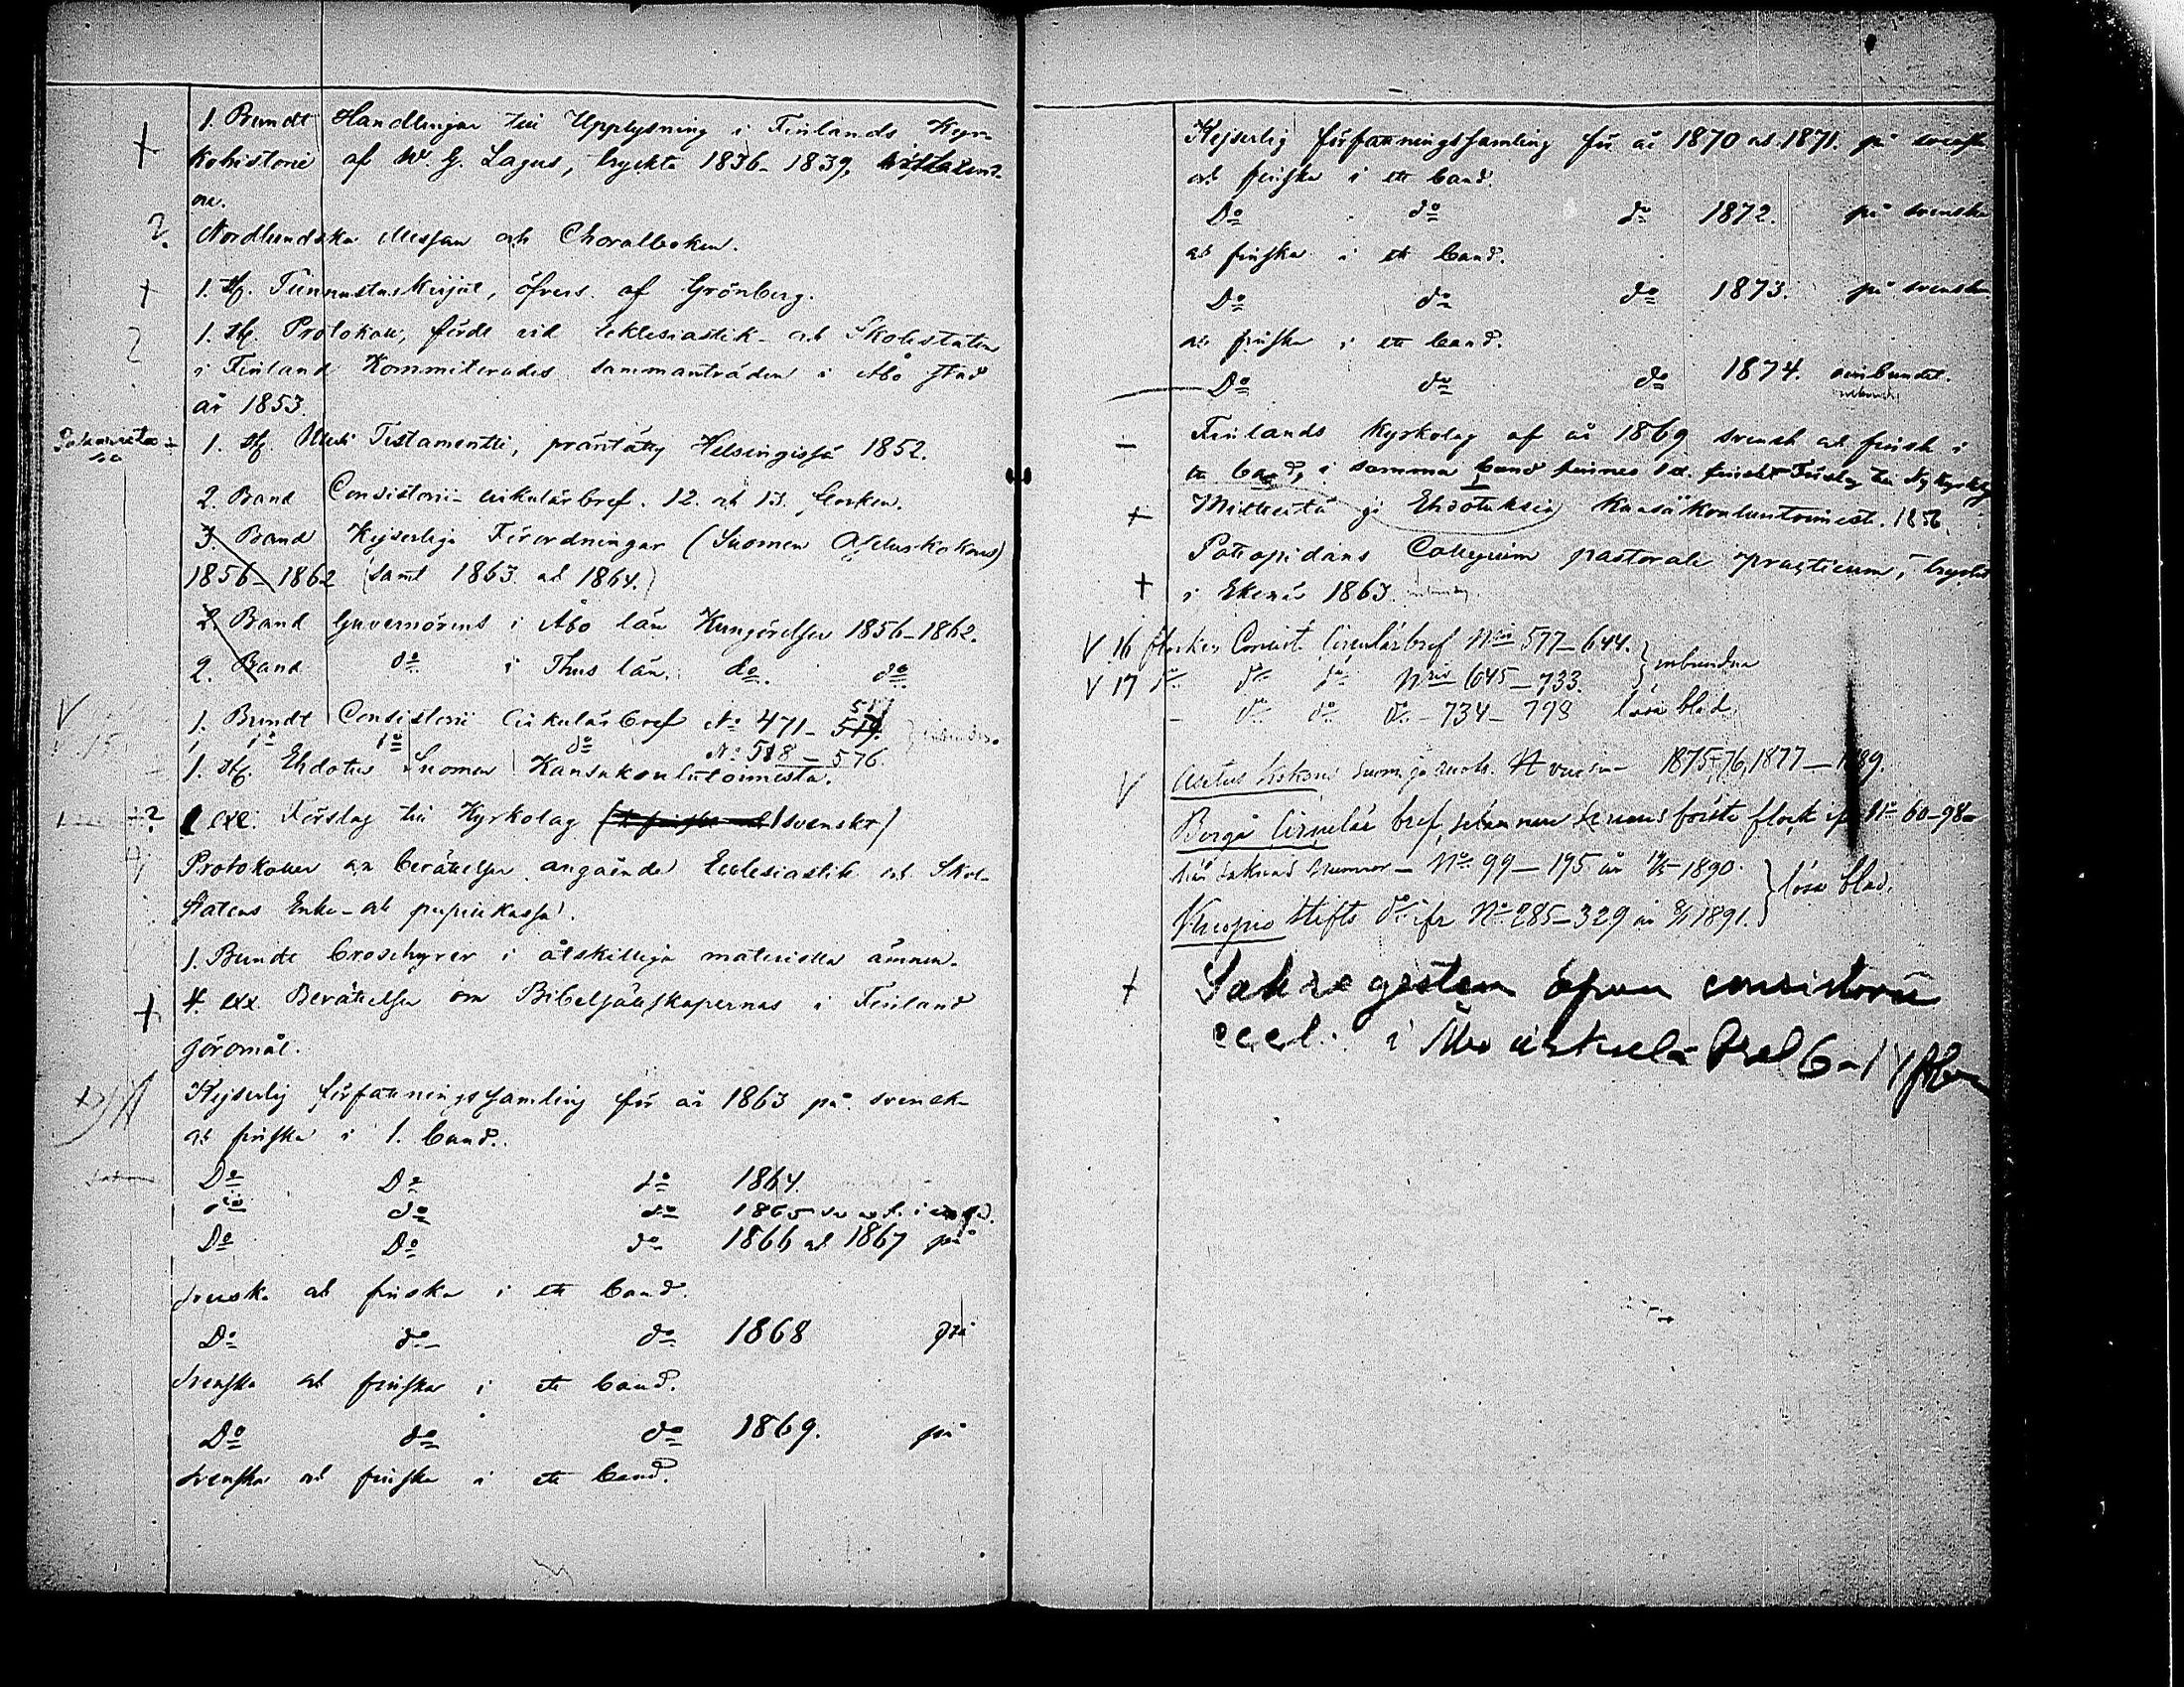 1. Bundt Handlingar till Upplysning i Finlands Kyr-
kohistorie af W. G. Lagus, tryckta 1836-1839,
2. Nordlundska Messan och Choralboken.
+ 1. st. Tunnustus Kirjat, öfvers. af Grönberg.
1. st. Protokoll, fördt vid Ecklesiastik- och Skolestaten
i Finland Kommiterades sammanträden i Åbo stad
år 1853.
1. st. Uusi Testamentti, präntätty Helsingissä 1852.
2. Band Consistorii cirkulärbref. 12. och 13. flocken.
3. Band Kejserliga Förordningar (Suomen Asetus-kokous)
1856-1862 (samt 1863 och 1864.)
2. Band Guvernörens i Åbo län Kungörelser 1856-1862.
2. Band do i Thus län. do. do
V 1. Bundt Consistorii Cirkulärbref No 471-517
1 do do do No 518-576.
1. st. Ehdotus Suomen Kansakoulutoimesta.
? exx. Förslag till Kyrkolag (svenskt)
Protokoller och berättelser angående Ecclesiastik och Skol-
statens Enke- och pupillkassa.
1. Bundt broschyrer i åtskilliga materiella ämnen.
+ 4. exx Berättelser om Bibelsällskapernas i Finland
göromål.
Kejserlig författningssamling för år 1863 på svensk-
och finska i 1. band.
Do Do do 1864.
do do do 1865
Do Do do 1866 och 1867 på
svenska och finska i ett band.
Do do do 1868 på
svenska och finska i ett band.
Do do do 1869. på
svenska och finska i ett band.
Kejserlig författningssamling för år 1870 och 1871. på svenska
och finska i ett band.
Do do do 1872. på svenska
och finska i ett band.
Do do do 1873. på svenska
och finska i ett band.
Do do do 1874. oinbundet.
- Finlands Kyrkolag af år 1869 svensk och finsk i
ett band, i samma band finnes
+ Mietteitä ja Ehdotuksia Kansakouluntoimesta. 1856
Pontoppidans Collegium pastorale practicum, tryckt
+ i Ekenäs 1863.
V 16 flocken Consist. Circulärbref Nris 577-644. } inbundna
V 17 do do do Nris 645-733.
- do do do - 734-798 lösa blad
V Asetus Kokous suom. ja ruots. 1875-76, 1877-1889.
Borgå Circulär bref, första flock No 60-98
No 99-195 1890. } lösa blad.
Kuopio Stifts do ifr No 285-329 1891.
+ Sakregistem öfver consistorii
eccl. i Åbo cirkulär bref 6-17